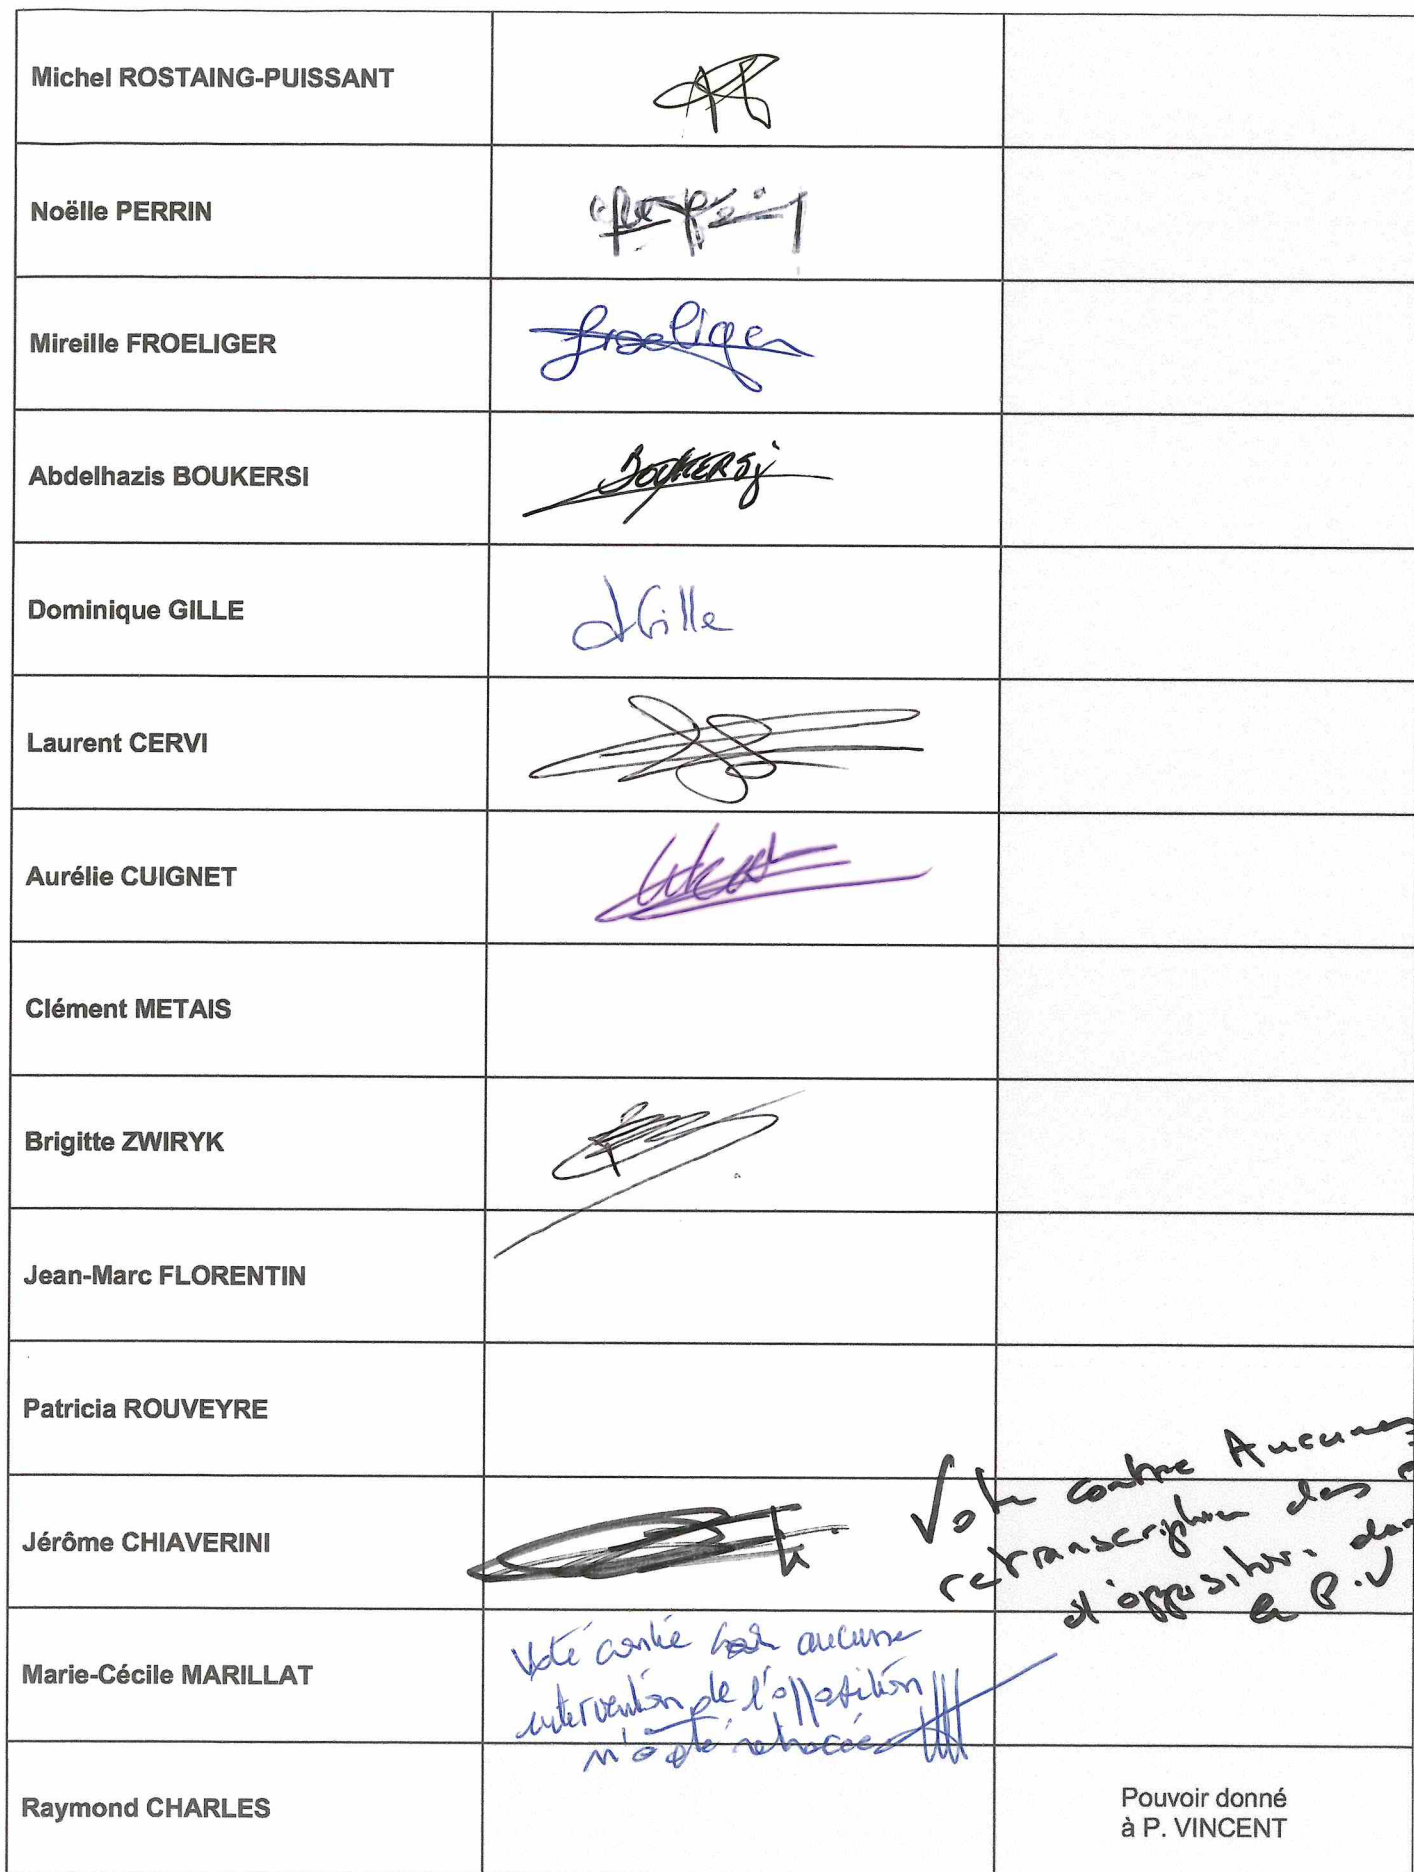 Michel ROSTAING-PUISSANT
Noëlle PERRIN
Mireille FROELIGER
froeliger
Abdelhazis BOUKERSI
BOUKERSi
Dominique GILLE
dGille
Laurent CERVI
Aurélie CUIGNET
Clément METAIS
Brigitte ZWIRYK
Jean-Marc FLORENTIN
Patricia ROUVEYRE
Jérôme CHIAVERINI
Vote contre Aucunes
retranscription des
d'opposition dans
le P.V
Marie-Cécile MARILLAT
Voté contre car aucune
intervention de l'opposition
n'a été
Raymond CHARLES
Pouvoir donné
à P. VINCENT